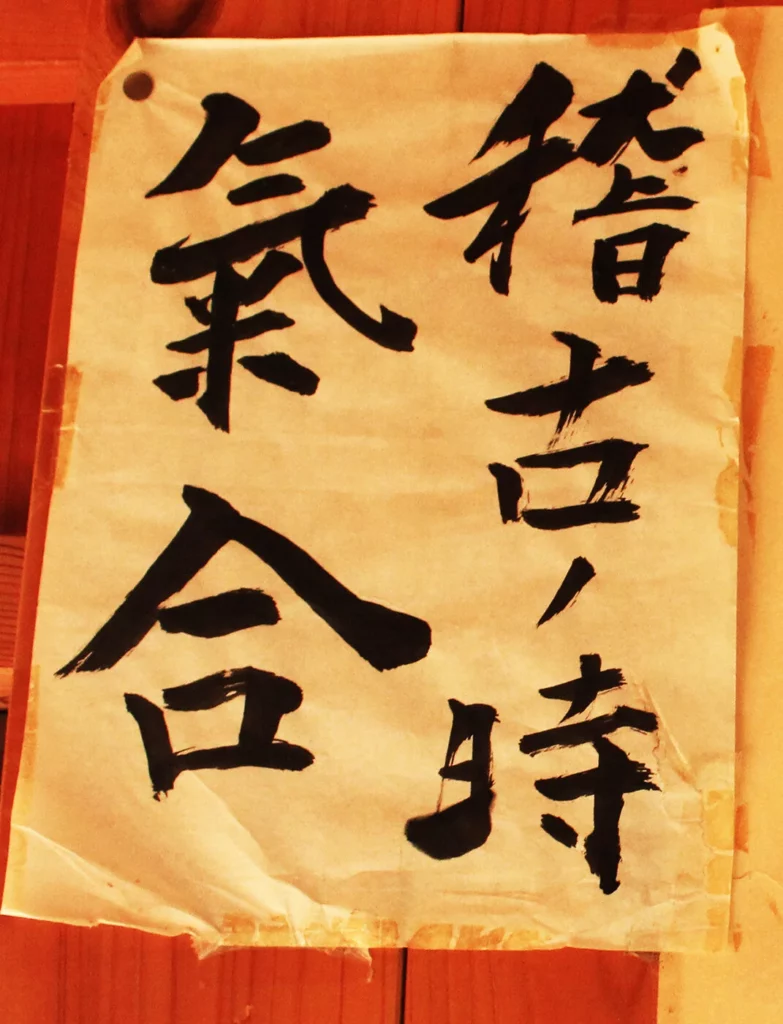 稽古ノ時
氣合